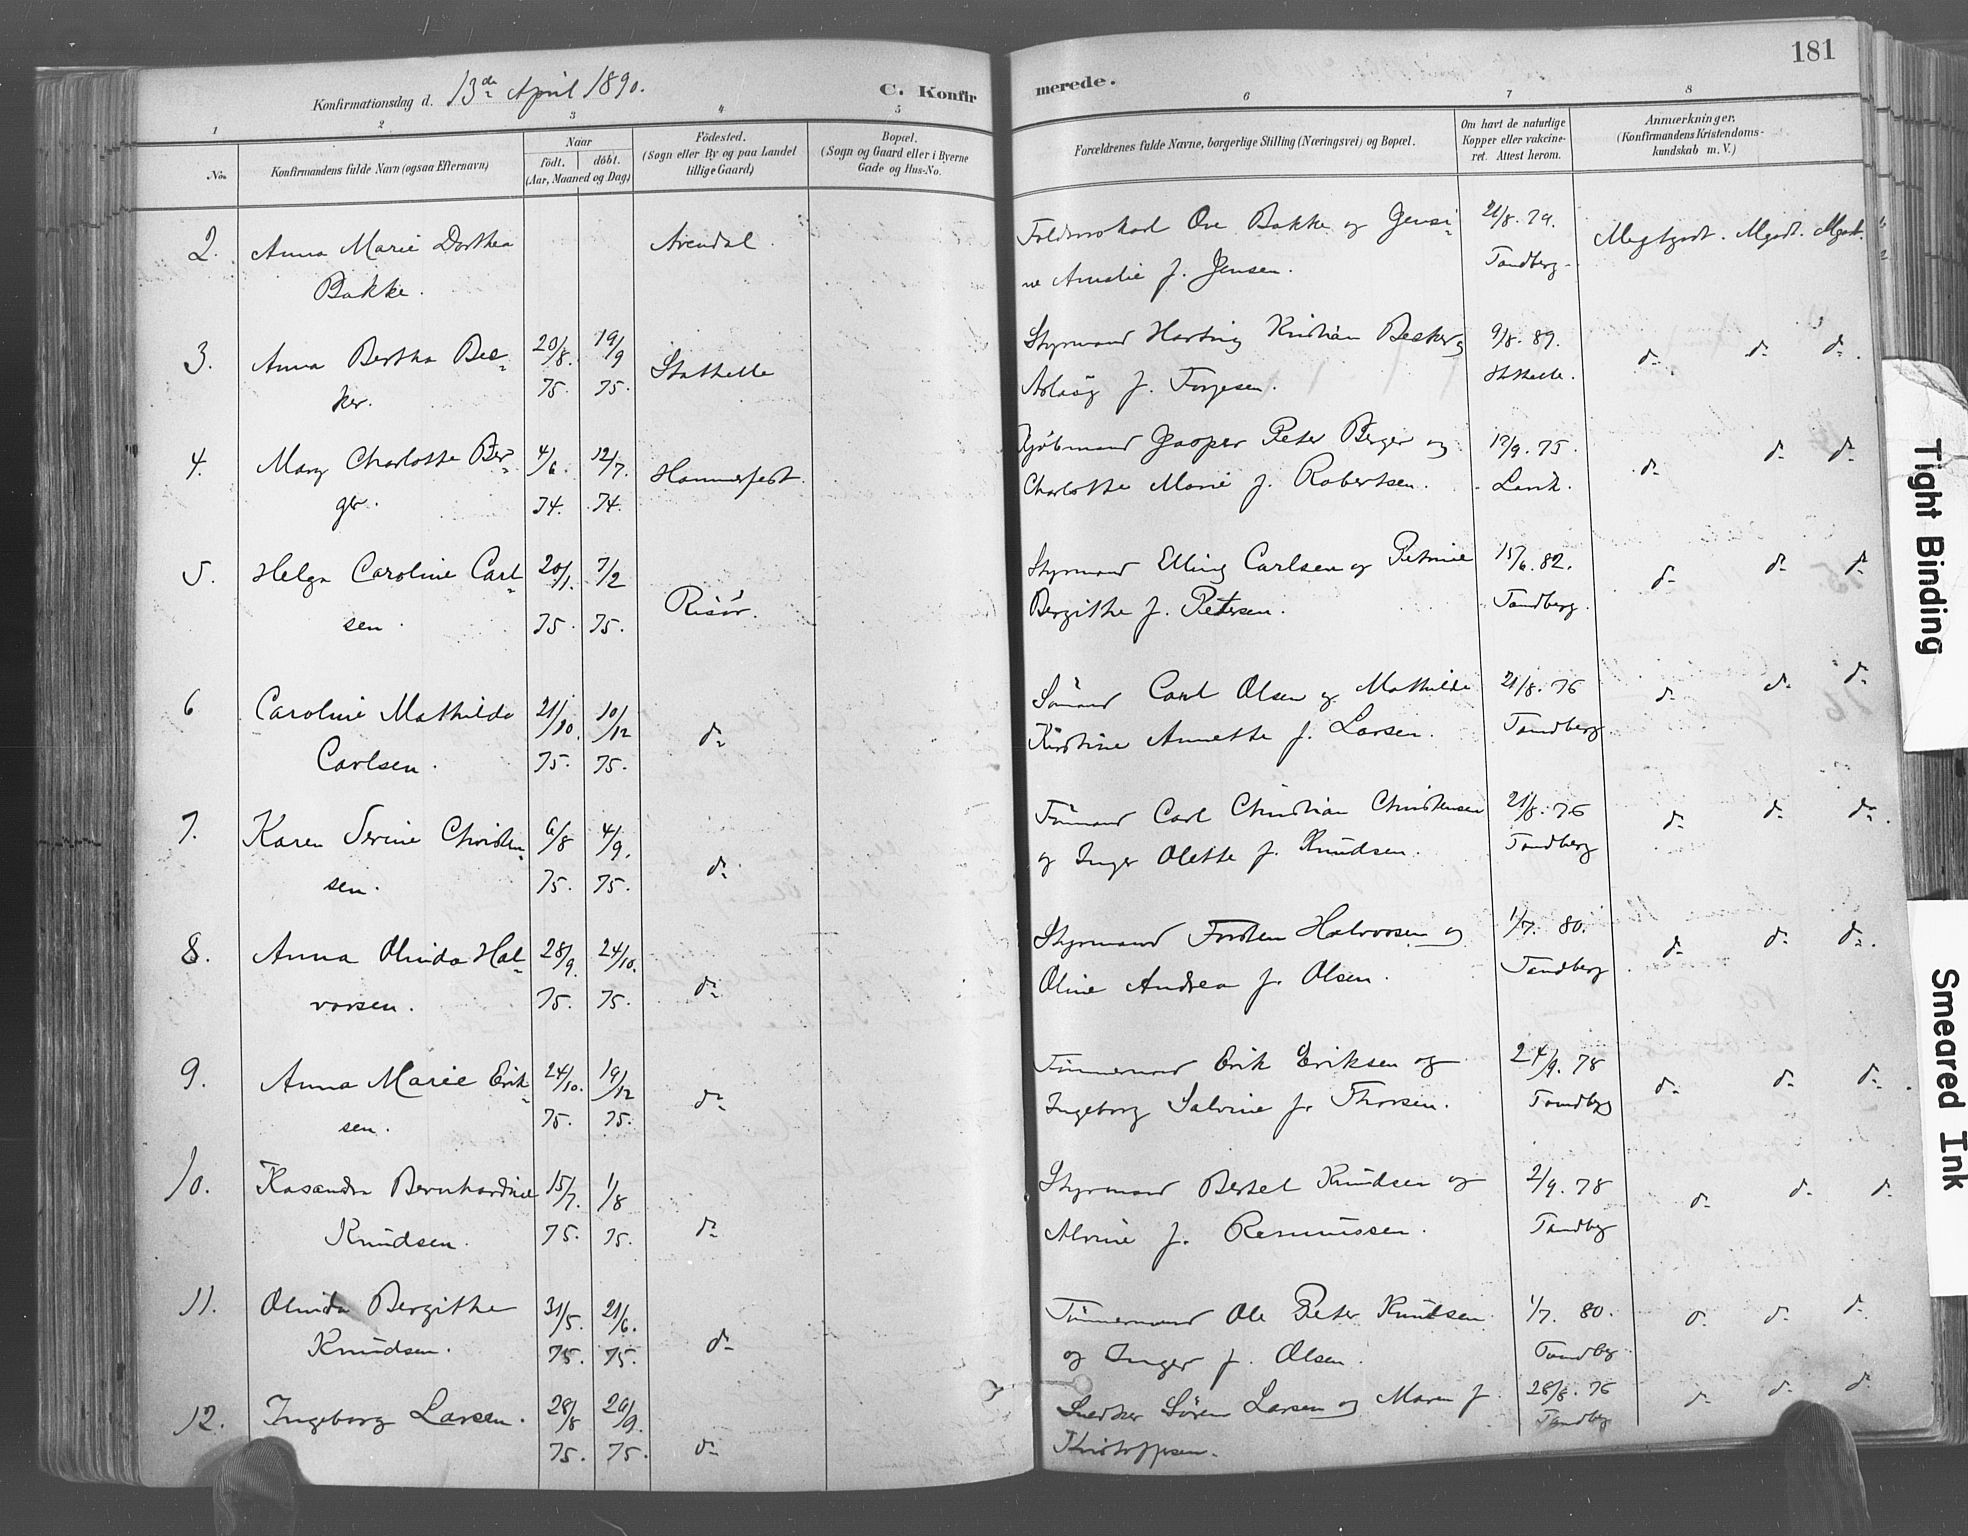 181
Konfirmationsdag d. 13de April 1890.
C. Konfirmerede.
1 2 3 4 5 6 7 8
No.
Konfirmandens fulde Navn (ogsaa Efternavn)
Naar
födt. döbt.
(Aar, Maaned og Dag)
Födested.
(Sogn eller By og paa Landet
tillige Gaard)
Bopæl.
(Sogn og Gaard eller i Byerne
Gade og Hus-No.
Forældrenes fulde Navne, borgerlige Stilling (Næringsvei) og Bopæl.
Om havt de naturlige
Kopper eller vakcine-
ret. Attest herom.
Anmærkninger.
(Konfirmandens Kristendoms-
kundskab m. V.)
2. Anna Marie Dorthea Arendal. Ove Bakke og Jensi- 21/8. 79. Megtgodt. Mgodt. Mgodt.
Bakke. ne Amalie f. Jensen. Tandberg
3. Anna Bertha Bec- 20/8. 19/9 Stathelle Styrmand Hartvig Kristian Becker og 9/8. 89. d- d- d-.
ker. 75. 75. Aslaüg f. Torjesen. Sthelle.
4. Mary Charlotte Ber- 4/6. 12/7. Hammerfest Kjöbmand Jasper Peter Berger og 17/9. 75. d- d- d-
ger. 74. 74. Charlotte Marie f. Robertsen.
5. Helga Caroline Carl- 20/1. 7/2 Risör. Styrmand Elling Carlsen og Petrine 15/6. 82. d- d- d-
sen. 75. 75. Bergithe f. Petersen. Tandberg.
6 Caroline Mathilde 21/10. 10/12 d- Sömand Carl Olsen og Mathilde 21/8. 76 d- d- d-
Carlsen. 75. 75. Kirstine Annette f. Larsen. Tandberg
7. Karen Serine Christen- 6/8 4/9. d- Carl Christian Christensen 21/8. 76 d- d- d-.
sen. 75. 75. og Inger Olette f. Knudsen. Tandberg
8. Anna Olinda Hal- 28/9. 24/10. d- Styrmand Torsten Halvorsen og 1/7. 80. d- d- d-.
vorsen. 75. 75. Oline Andrea f. Olsen. Tandberg
9. Anna Marie Erik- 24/10. 19/12 d- Tömmermand Erik Eriksen og 24/9. 78 d- d- d-.
sen. 75. 75. Ingeborg Salvine f. Thorsen. Tandbg
10. Kasandra Bernhardine 15/7. 1/8 d- Styrmand Bertel Knudsen og 2/9. 78 d- d- d-
Knudsen. 75. 75. Alvine f. Rasmussen. Tandbg
11. Olinda Bergithe 31/5. 21/6. d- Tömmermand Ole Peter Knudsen 1/7. 80. d- d- d-
Knudsen. 75. 75. og Inger f. Olsen. Tandbg
12. Ingeborg Larsen. 28/8 26/9. d- Snedker Sören Larsen og Maren f. 28/8. 76 d- d- d-
75. 75. Kristoffersen. Tandbg
Tight Binding
Smeared Ink